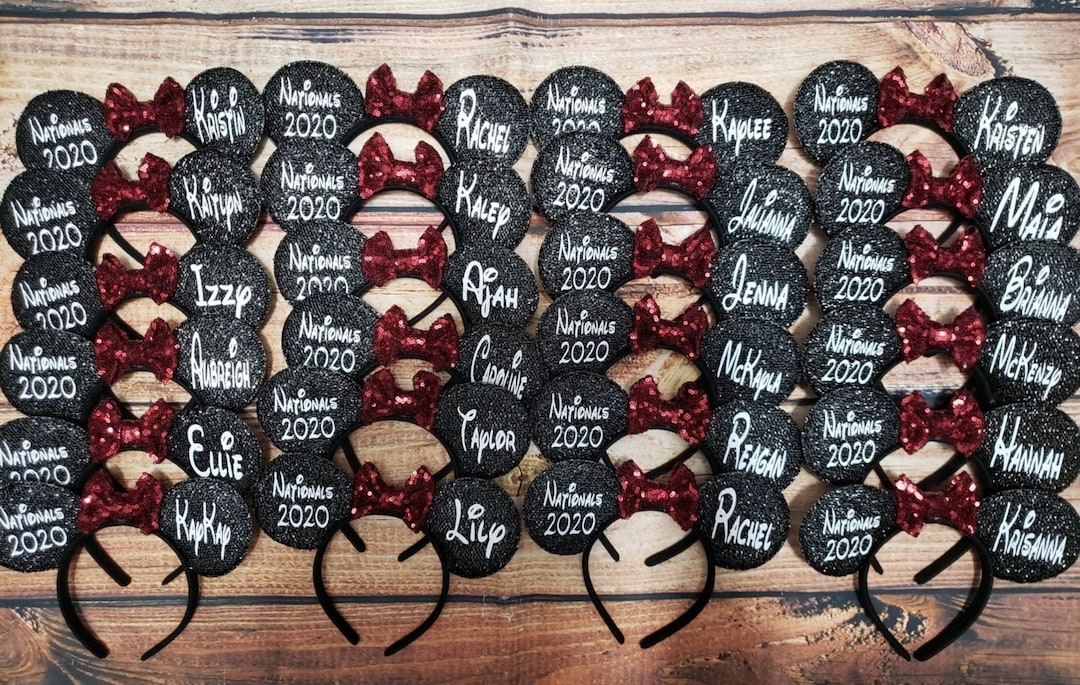 Nationals
2020
Kristin
Nationals
2020
Rachel
Nationals
2020
Kaylee
Nationals
2020
Kristen
Nationals
2020
Kaitlyn
Nationals
2020
Kaley
Nationals
2020
Jalianna
Nationals
2020
Maia
Nationals
2020
Izzy
Nationals
2020
Ajah
Nationals
2020
Jenna
Nationals
2020
Brianna
Nationals
2020
Aubreigh
Nationals
2020
Caroline
Nationals
2020
McKayla
Nationals
2020
McKenzy
Nationals
2020
Ellie
Nationals
2020
Taylor
Nationals
2020
Reagan
Nationals
2020
Hannah
Nationals
2020
KayKay
Nationals
2020
Lily
Nationals
2020
Rachel
Nationals
2020
Krisanna